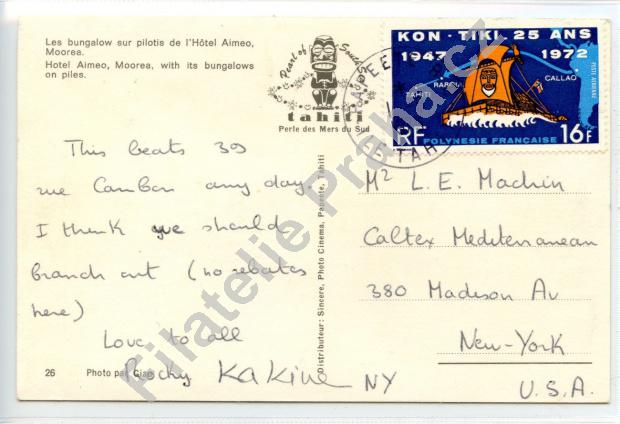 Les bungalow sur pilotis de l'Hôtel Aimeo,
Moorea.
Hotel Aimeo, Moorea, with its bungalows
on piles.
Pearl of South
tahiti
Perle des Mers du Sud
PAPEE
TAH
KON-TIKI. 25 ANS
1947 1972
RAROIA
CALLAO
TAHITI
POSTE AERIENNE
RF POLYNESIE FRANÇAISE 16F
This beats 39
rue Cambon any day.
I think we should
branch out (no rebates
here)
Love to all
Mr L. E. Machin
Caltex Mediterranean
380 Madison Av
New-York
NY U.S.A.
Distributeur: Sincere, Photo Cinema, Papeete, Tahiti
26 Photo par
Filatelie Praha.cz